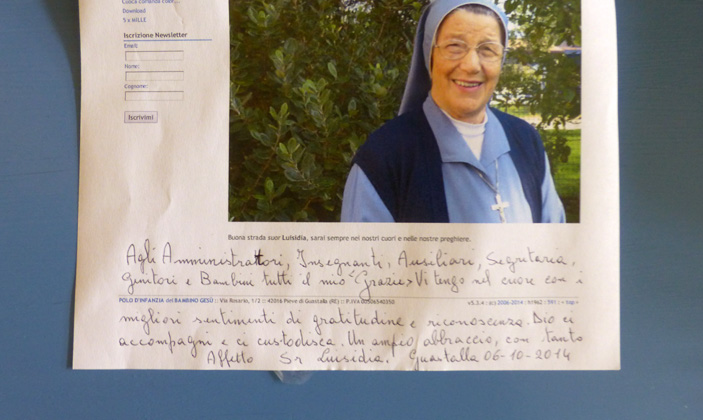 Download
5 x MILLE
Iscrizione Newsletter
Email:
Nome:
Cognome:
Iscrivimi
Buona strada suor Luisidia, sarai sempre nei nostri cuori e nelle nostre preghiere.
Agli Amministrattori, Insegnanti, Ausiliari, Segretaria,
Genitori e Bambini tutti il mio "Grazie" Vi tengo nel cuore con i
POLO D'INFANZIA del BAMBINO GESÙ :: Via Rosario, 1/2 :: 42016 Pieve di Guastalla (RE) :: P.IVA
migliori sentimenti di gratitudine e riconoscenza. Dio ci
accompagni e ci custodisca. Un ampio abbraccio, con tanto
Affetto Sr Luisidia. Guastalla 06-10-2014